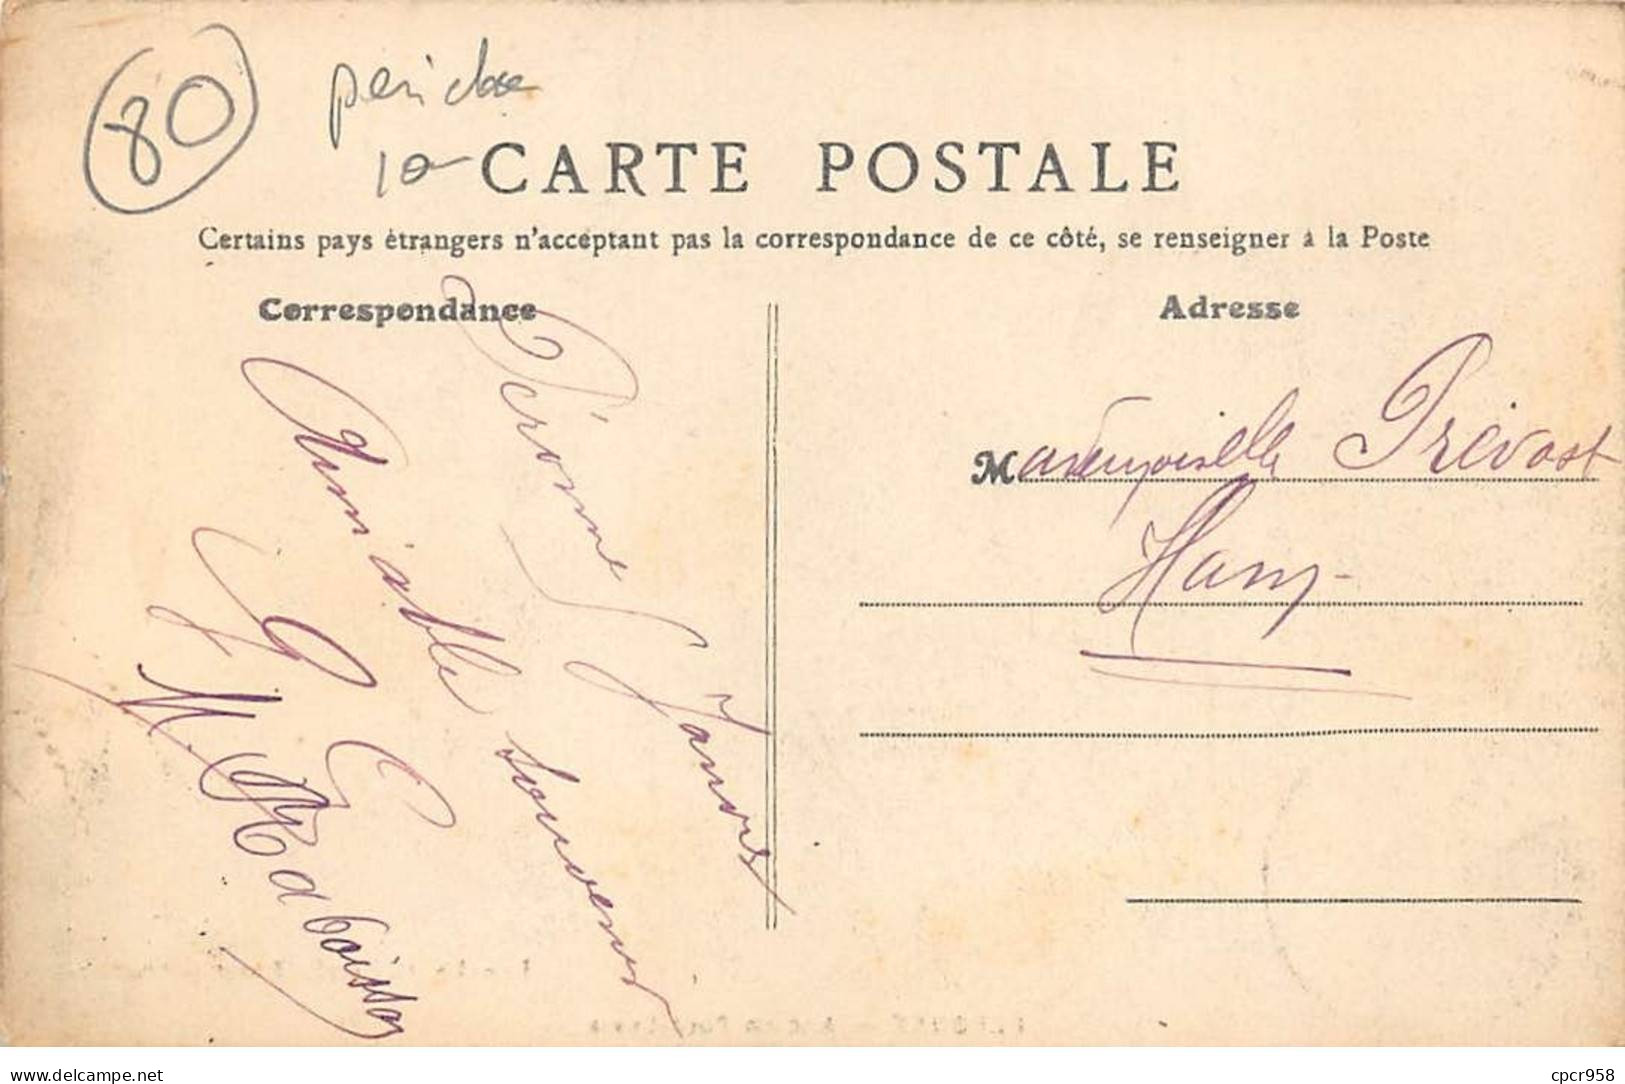 80
10
CARTE POSTALE
Certains pays étrangers n'acceptant pas la correspondance de ce côté, se renseigner à la Poste
Correspondance
Adresse
Péronne
Aimable souvenir
Mademoiselle Prévost
Ham
delcampe.net
cpcr958